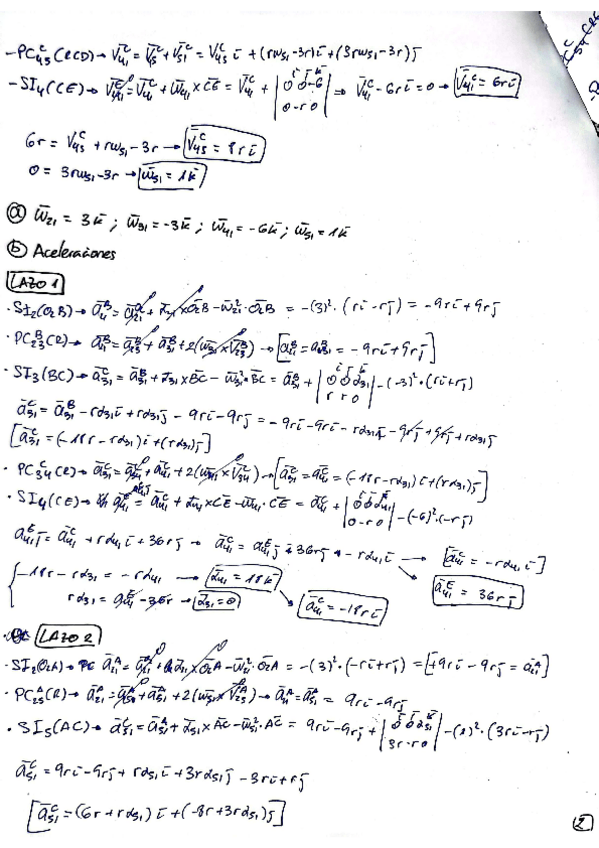 - PC₄₅ᶜ (RCD) → V̄₄₁ᶜ = V̄₄₅ᶜ + V̄₅₁ᶜ = V₄₅ᶜ ī + (rω₅₁ - 3r) ī + (3rω₅₁ - 3r) j̄
- SI₄ (CE) → V̄₄₁ᴱ = V̄₄₁ᶜ + ω̄₄₁ × C̄Ē = V̄₄₁ᶜ + | ī j̄ k̄ 0 0 -6 0 -r 0 | ⇒ V̄₄₁ᶜ - 6r ī = 0 → V̄₄₁ᶜ = 6r ī
6r = V₄₅ᶜ + rω₅₁ - 3r → V̄₄₅ᶜ = 8r ī
0 = 3rω₅₁ - 3r → ω̄₅₁ = 1 k̄
ⓐ ω̄₂₁ = 3 k̄ ; ω̄₃₁ = -3 k̄ ; ω̄₄₁ = -6 k̄ ; ω̄₅₁ = 1 k̄
ⓑ Aceleraciones
LAZO 1
· SI₂ (O₂B) → ā₂₁ᴮ = ā₂₁ᴼ² + ᾱ₂₁ × Ō₂B̄ - ω̄₂₁² · Ō₂B̄ = -(3)² · (r ī - r j̄) = -9r ī + 9r j̄
· PC₂₃ᴮ (R) → ā₂₁ᴮ = ā₂₃ᴮ + ā₃₁ᴮ + 2(ω̄₃₁ × V̄₂₃ᴮ) → [ā₂₁ᴮ = ā₃₁ᴮ = -9r ī + 9r j̄]
· SI₃ (BC) → ā₃₁ᶜ = ā₃₁ᴮ + ᾱ₃₁ × B̄C̄ - ω̄₃₁² · B̄C̄ = ā₃₁ᴮ + | ī j̄ k̄ 0 0 α₃₁ r r 0 | - (-3)² · (r ī + r j̄)
ā₃₁ᶜ = ā₃₁ᴮ - rα₃₁ ī + rα₃₁ j̄ - 9r ī - 9r j̄ = -9r ī - 9r ī - rα₃₁ ī - 9r j̄ + 9r j̄ + rα₃₁ j̄
[ā₃₁ᶜ = (-18r - rα₃₁) ī + (rα₃₁) j̄]
· PC₃₄ᶜ (R) → ā₃₁ᶜ = ā₃₄ᶜ + ā₄₁ᶜ + 2(ω̄₄₁ × V̄₃₄ᶜ) → [ā₃₁ᶜ = ā₄₁ᶜ = (-18r - rα₃₁) ī + (rα₃₁) j̄]
· SI₄ (CE) → ā₄₁ᴱ = ā₄₁ᶜ + ᾱ₄₁ × C̄Ē - ω̄₄₁² · C̄Ē = ā₄₁ᶜ + | ī j̄ k̄ 0 0 α₄₁ 0 -r 0 | - (-6)² · (-r j̄)
a₄₁ᴱ j̄ = ā₄₁ᶜ + rα₄₁ ī + 36r j̄ → ā₄₁ᶜ = a₄₁ᴱ j̄ - 36r j̄ - rα₄₁ ī → [ā₄₁ᶜ = -rα₄₁ ī]
{ -18r - rα₃₁ = -rα₄₁ → ᾱ₄₁ = 18 k̄ ā₄₁ᴱ = 36r j̄
rα₃₁ = a₄₁ᴱ - 36r → ᾱ₃₁ = 0 ā₄₁ᶜ = -18r ī
LAZO 2
· SI₂ (O₂A) → ā₂₁ᴬ = ā₂₁ᴼ² + ᾱ₂₁ × Ō₂Ā - ω̄₂₁² · Ō₂Ā = -(3)² · (-r ī + r j̄) = [+9r ī - 9r j̄ = ā₂₁ᴬ]
· PC₂₅ᴬ (R) → ā₂₁ᴬ = ā₂₅ᴬ + ā₅₁ᴬ + 2(ω̄₅₁ × V̄₂₅ᴬ) → ā₂₁ᴬ = ā₅₁ᴬ = 9r ī - 9r j̄
· SI₅ (AC) → ā₅₁ᶜ = ā₅₁ᴬ + ᾱ₅₁ × ĀC̄ - ω̄₅₁² · ĀC̄ = 9r ī - 9r j̄ + | ī j̄ k̄ 0 0 α₅₁ 3r -r 0 | - (1)² · (3r ī - r j̄)
ā₅₁ᶜ = 9r ī - 9r j̄ + rα₅₁ ī + 3rα₅₁ j̄ - 3r ī + r j̄
[ā₅₁ᶜ = (6r + rα₅₁) ī + (-8r + 3rα₅₁) j̄]
2